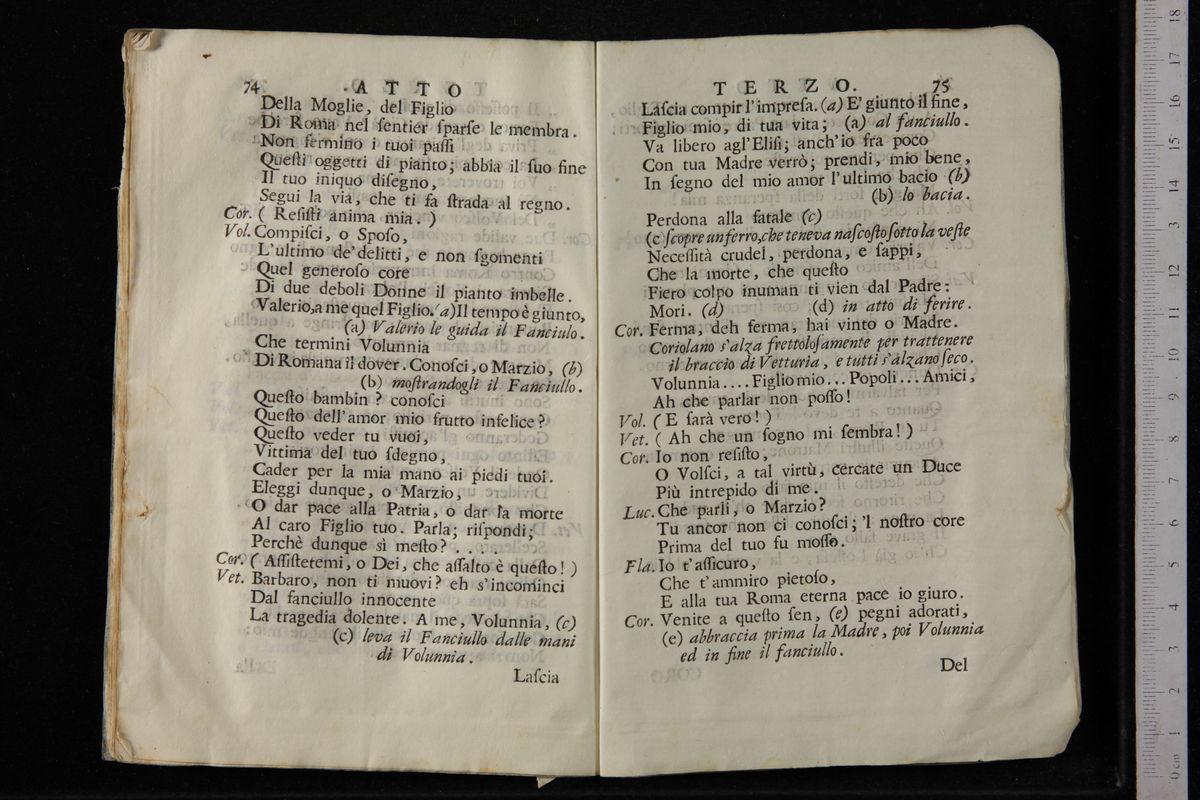 74 ATTO
Della Moglie, del Figlio
Di Roma nel ſentier ſparſe le membra.
Non fermino i tuoi paſſi
Queſti oggetti di pianto; abbia il ſuo fine
Il tuo iniquo diſegno,
Segui la via, che ti fa ſtrada al regno.
Cor. ( Reſiſti anima mia. )
Vol. Compiſci, o Spoſo,
L'ultimo de' delitti, e non ſgomenti
Quel generoſo core
Di due deboli Donne il pianto imbelle.
Valerio, a me quel Figlio. (a) Il tempo è giunto,
(a) Valerio le guida il Fanciulo.
Che termini Volunnia
Di Romana il dover. Conoſci, o Marzio, (b)
(b) moſtrandogli il Fanciullo.
Queſto bambin? conoſci
Queſto dell'amor mio frutto infelice?
Queſto veder tu vuoi,
Vittima del tuo ſdegno,
Cader per la mia mano ai piedi tuoi.
Eleggi dunque, o Marzio,
O dar pace alla Patria, o dar la morte
Al caro Figlio tuo. Parla; riſpondi;
Perchè dunque sì meſto? . . . . .
Cor. ( Aſſiſtetemi, o Dei, che aſſalto è queſto! )
Vet. Barbaro, non ti muovi? eh s'incominci
Dal fanciullo innocente
La tragedia dolente. A me, Volunnia, (c)
(c) leva il Fanciullo dalle mani
di Volunnia.
Laſcia
TERZO. 75
Laſcia compir l'impreſa. (a) E' giunto il fine,
Figlio mio, di tua vita; (a) al fanciullo.
Va libero agl'Eliſi; anch'io fra poco
Con tua Madre verrò; prendi, mio bene,
In ſegno del mio amor l'ultimo bacio (b)
(b) lo bacia.
Perdona alla fatale (c)
(c ſcopre un ferro, che teneva naſcoſto ſotto la veſte
Neceſſità crudel, perdona, e ſappi,
Che la morte, che queſto
Fiero colpo inuman ti vien dal Padre:
Mori. (d) (d) in atto di ferire.
Cor. Ferma, deh ferma, hai vinto o Madre.
Coriolano s'alza frettoloſamente per trattenere
il braccio di Vetturia, e tutti s'alzano ſeco.
Volunnia.... Figlio mio... Popoli... Amici,
Ah che parlar non poſſo!
Vol. ( E ſarà vero! )
Vet. ( Ah che un ſogno mi ſembra! )
Cor. Io non reſiſto,
O Volſci, a tal virtù, cercate un Duce
Più intrepido di me.
Luc. Che parli, o Marzio?
Tu ancor non ci conoſci; 'l noſtro core
Prima del tuo fu moſſo.
Fla. Io t'aſſicuro,
Che t'ammiro pietoſo,
E alla tua Roma eterna pace io giuro.
Cor. Venite a queſto ſen, (e) pegni adorati,
(e) abbraccia prima la Madre, poi Volunnia
ed in fine il fanciullo.
Del